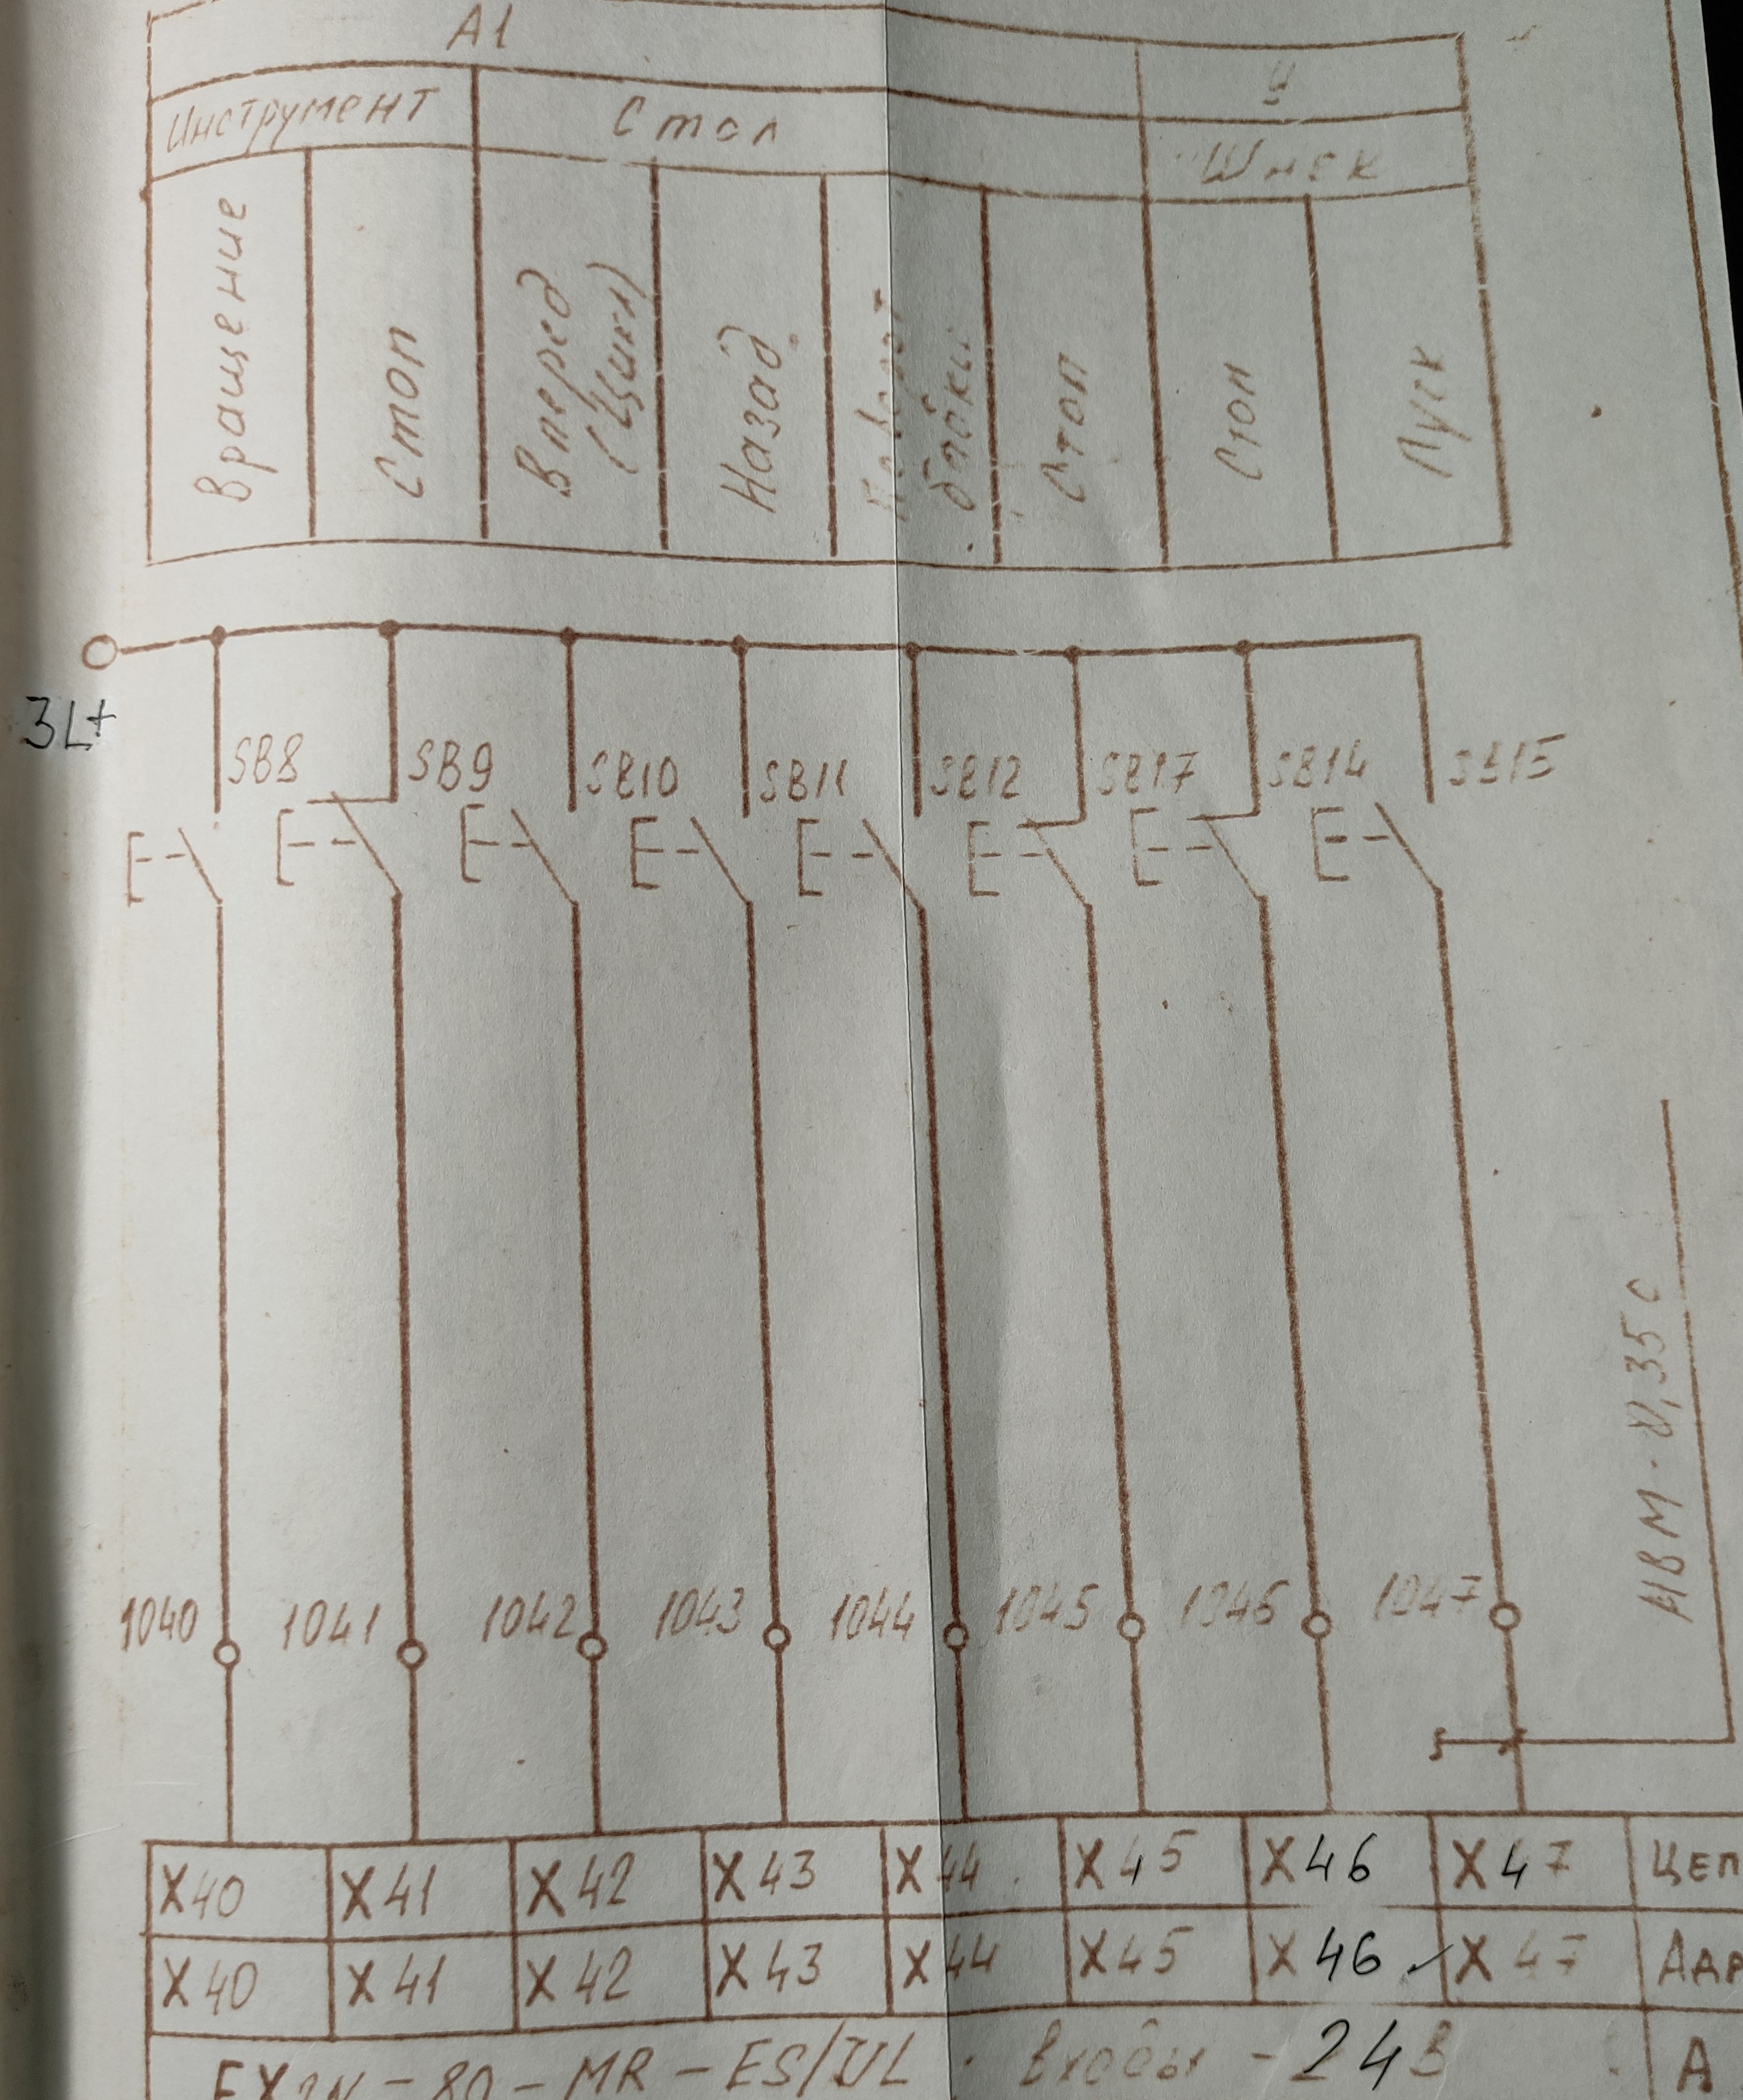 А1
У
Инструмент
Стол
Шнек
Вращение
Стоп
Вперед
(Цикл)
Назад
Поворот
бабки
Стоп
Стоп
Пуск
3L+
SB8
SB9
SB10
SB11
SB12
SB17
SB14
SB15
НВМ-0,35с
1040
1041
1042
1043
1044
1045
1046
1047
X40
X41
X42
X43
X44
X45
X46
X47
ЦЕП
X40
X41
X42
X43
X44
X45
X46
X47
Адр
FX2N-80-MR-ES/UL
Входы - 24В
А